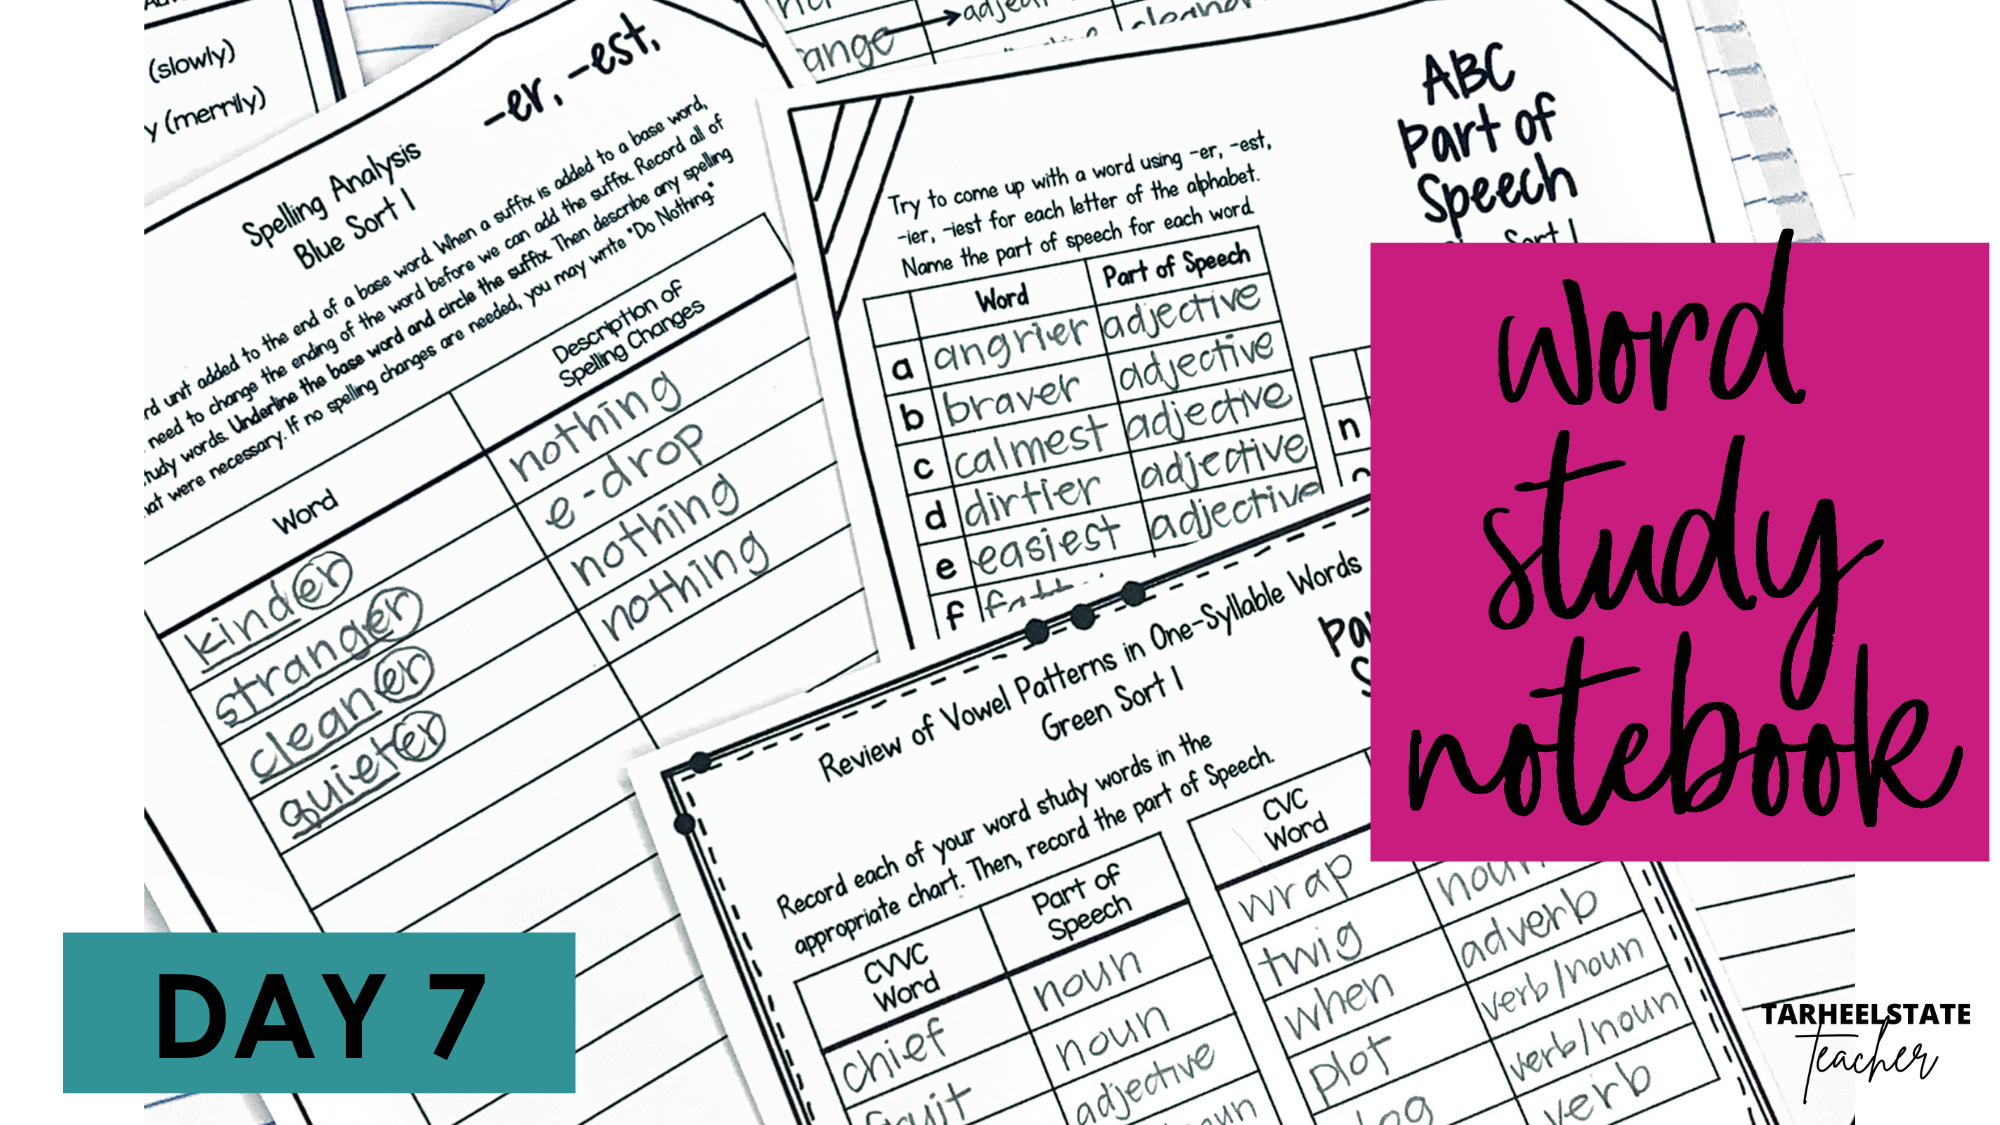 (slowly)
y (merrily)
ange → adjecti
cleaner
Spelling Analysis
Blue Sort 1
-er, -est,
rd unit added to the end of a base word. When a suffix is added to a base word,
need to change the ending of the word before we can add the suffix. Record all of
tudy words. Underline the base word and circle the suffix. Then describe any spelling
hat were necessary. If no spelling changes are needed, you may write "Do Nothing."
Word
Description of
Spelling Changes
kinder nothing
stranger e-drop
cleaner nothing
quieter nothing
ABC
Part of
Speech
Sort 1
Try to come up with a word using -er, -est,
-ier, -iest for each letter of the alphabet.
Name the part of speech for each word.
Word Part of Speech
a angrier adjective
b braver adjective
c calmest adjective
d dirtier adjective
e easiest adjective
f
n
Review of Vowel Patterns in One-Syllable Words
Green Sort 1
Pa
S
Record each of your word study words in the
appropriate chart. Then, record the part of Speech.
CVVC
Word
Part of
Speech
chief noun
fruit noun
adjective
noun
CVC
Word
wrap noun
twig adverb
when verb/noun
plot verb/noun
log verb
word
study
notebook
DAY 7
TARHEELSTATE
Teacher